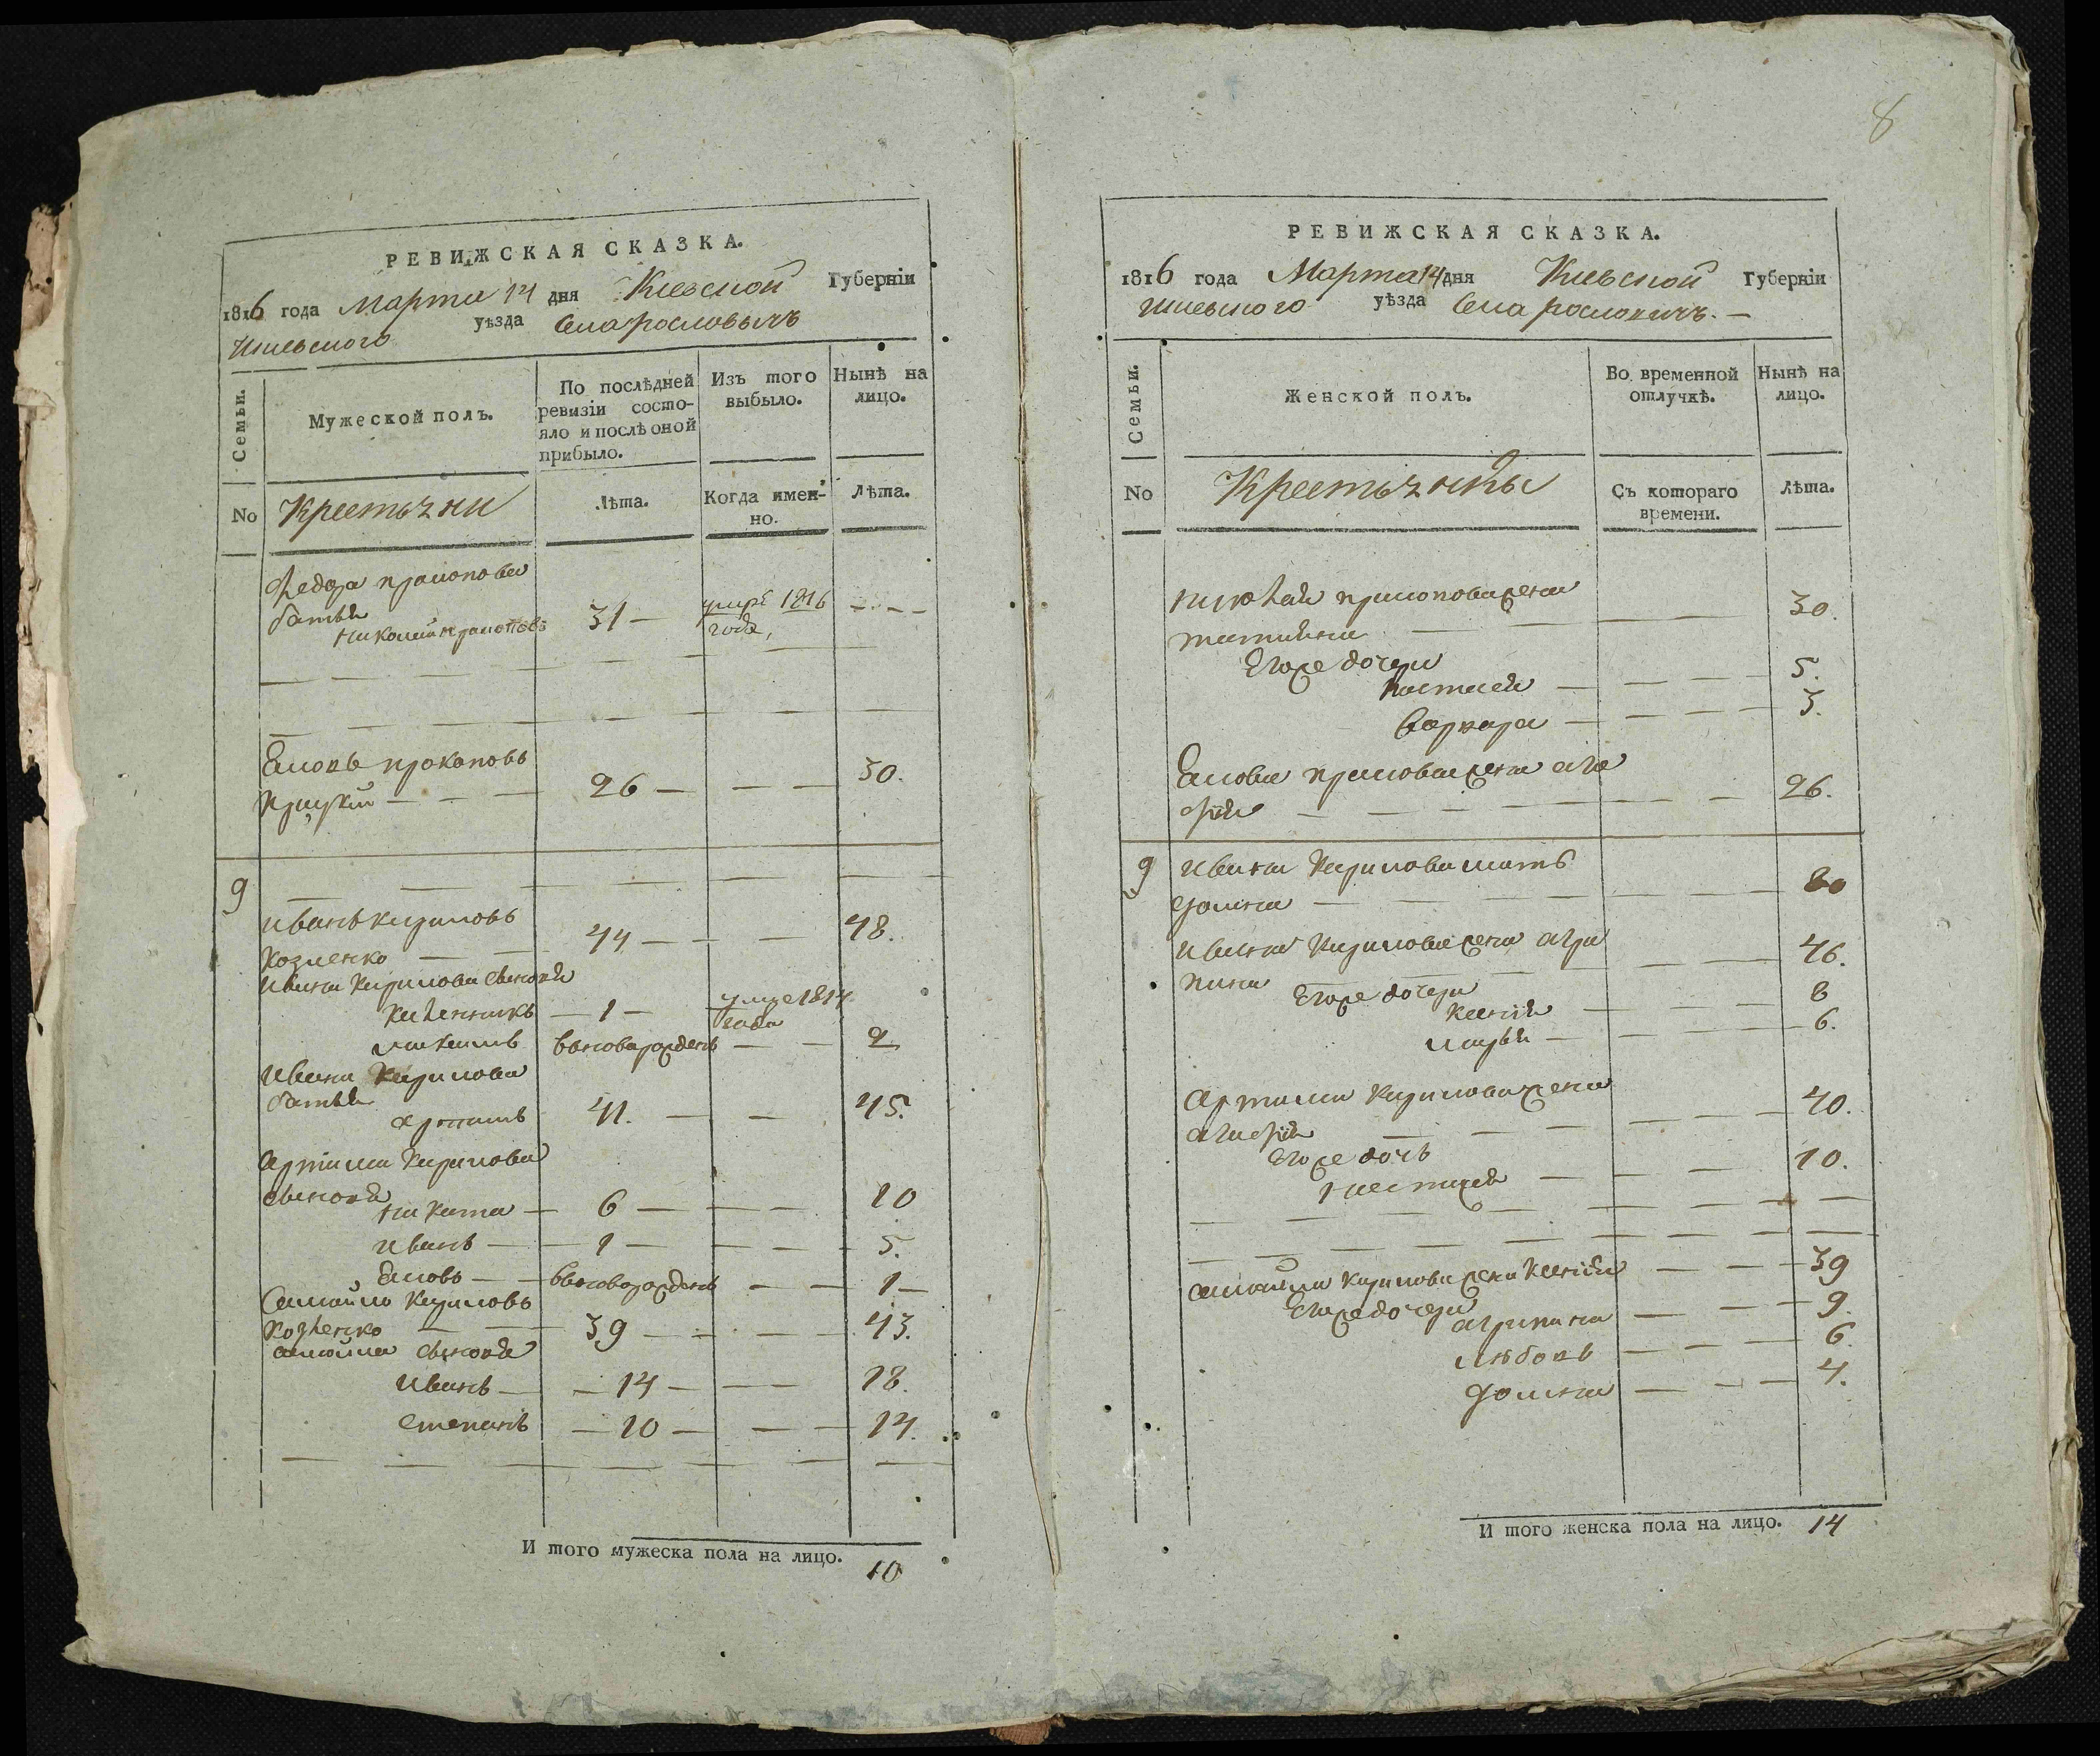 РЕВИЖСКАЯ СКАЗКА.
1816 года Марта 14 дня Киевской Губерніи
уѣзда Села
Семьи.
Мужеской полъ.
По послѣдней ревизіи состо-
яло и послѣ оной
прибыло.
Изъ того
выбыло.
Нынѣ на
лицо.
No Крестьяни
Лѣта.
Когда имен-
но.
Лѣта.
Федора прокопова
братья
Николай прокоповъ 31 — умре 1816
года,
Яковъ прокоповъ
26 — 30.
9
Иванъ кириловъ
Козленко 44 — 48.
Ивана Кирилова сыновья
1 — умре 1814
года
вновьрожденъ — 2
Ивана Кирилова
братья
артимъ 41. — 45.
Артима Кирилова
сыновья
Никита — 6 — 10
Иванъ — 1 — 5.
Яковъ — вновьрожденъ — 1 —
Самойло Кириловъ
Козленко 39 — 43.
самойла сыновья
Иванъ — 14 — 18.
степанъ — 10 — 14.
И того мужеска пола на лицо.
10
8
РЕВИЖСКАЯ СКАЗКА.
1816 года Марта 14 дня Киевской Губерніи
уѣзда Села
Семьи.
Женской полъ.
Во временной
отлучкѣ.
Нынѣ на
лицо.
No Крестьянки
Съ котораго
времени.
Лѣта.
николая прокопова жена
татияна 30.
Егоже дочери
настасия — 5.
варвара — 3.
Якова прокопова жена ага
фия 26.
9 Ивана Кирилова мать
домна 80
Ивана Кирилова жена агри
пина 46.
Егоже дочери
Ксения 8
марья — 6.
Артима Кирилова жена
агафия 40.
Егоже дочь
настасия — 10.
самойла Кирилова жена Ксения — 39
Егоже дочери
агрипина — 9.
любовь — 6.
домна — 4.
И того женска пола на лицо. 14